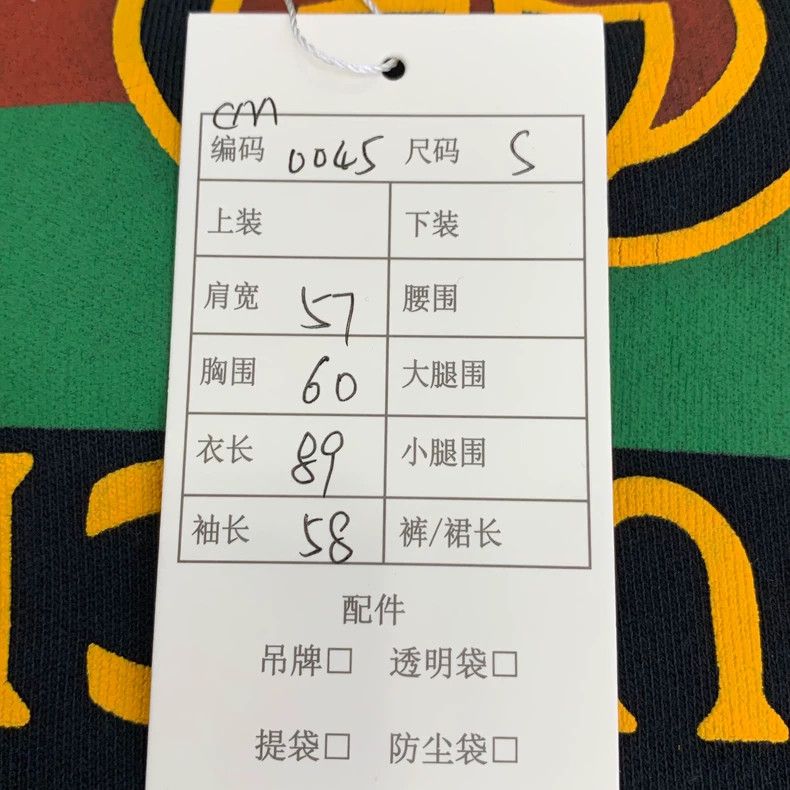 cm
编码 0045 尺码 S
上装 下装
肩宽 57 腰围
胸围 60 大腿围
衣长 89 小腿围
袖长 58 裤/裙长
配件
吊牌□ 透明袋□
提袋□ 防尘袋□